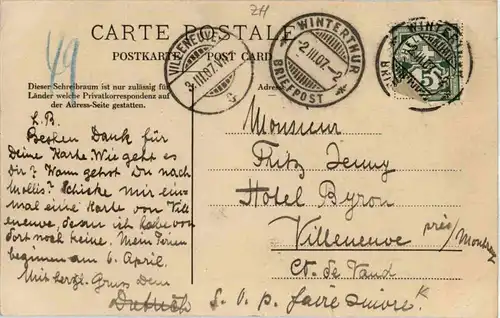 ZH
CARTE POSTALE
POSTKARTE POST CARD
49
VILLENEUVE
3.III.07
WINTERTHUR
-2.III.07.-2
BRIEFPOST
WINTERTHUR
5
Dieser Schreibraum ist nur zulässig für
Länder welche Privatkorrespondenz auf
der Adress-Seite gestatten.
L. B.
Besten Dank für
Deine Karte. Wie geht es
Dir? Wann gehst Du nach
Mollis? Schicke mir ein-
mal eine Karte von Vill
eneuve, denn ich habe von
dort noch keine. Meine Ferien
beginnen am 6. April.
Mit herzl. Gruss Dein
Dietrich
Monsieur
Fritz Jenny
Hotel Byron
Villeneuve près
Montreux
Ct. de Vaud
s. v. p. faire suivre.